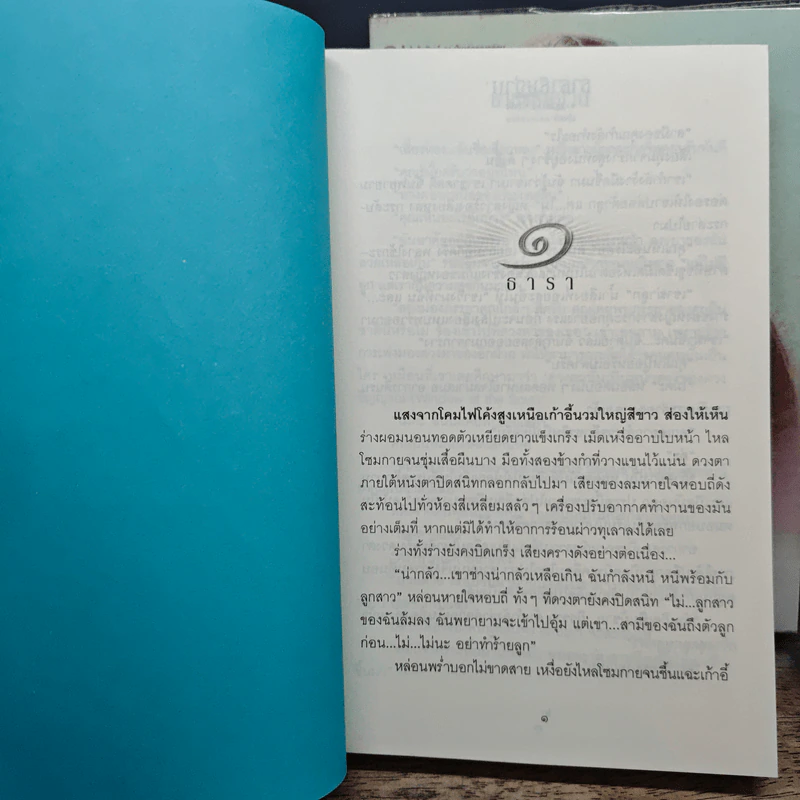 ๑
ธารา
แสงจากโคมไฟโค้งสูงเหนือเก้าอี้นวมใหญ่สีขาว ส่องให้เห็น
ร่างผอมนอนทอดตัวเหยียดยาวแข็งเกร็ง เม็ดเหงื่ออาบใบหน้า ไหล
โซมกายจนชุ่มเสื้อผืนบาง มือทั้งสองข้างกำที่วางแขนไว้แน่น ดวงตา
ภายใต้หนังตาปิดสนิทกลอกกลับไปมา เสียงของลมหายใจหอบถี่ดัง
สะท้อนไปทั่วห้องสี่เหลี่ยมสลัวๆ เครื่องปรับอากาศทำงานของมัน
อย่างเต็มที่ หากแต่มิได้ทำให้อาการร้อนผ่าวทุเลาลงได้เลย
ร่างทั้งร่างยังคงบิดเกร็ง เสียงครางดังอย่างต่อเนื่อง...
“น่ากลัว...เขาช่างน่ากลัวเหลือเกิน ฉันกำลังหนี หนีพร้อมกับ
ลูกสาว” หล่อนหายใจหอบถี่ ทั้งๆ ที่ดวงตายังคงปิดสนิท “ไม่...ลูกสาว
ของฉันล้มลง ฉันพยายามจะเข้าไปอุ้ม แต่เขา...สามีของฉันถึงตัวลูก
ก่อน...ไม่...ไม่นะ อย่าทำร้ายลูก”
หล่อนพร่ำบอกไม่ขาดสาย เหงื่อยังไหลโซมกายจนชื้นแฉะเก้าอี้
๑